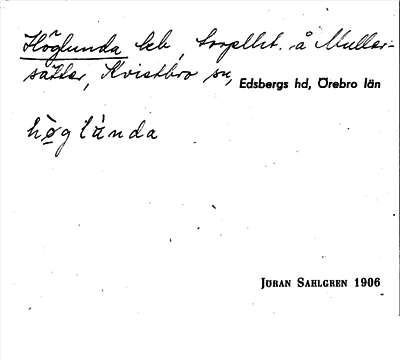 Höglunda leb, torpllt. å Muller-
sätter, Kvistbro sn, Edsbergs hd, Örebro län
hög lùnda
JÖRAN SAHLGREN 1906